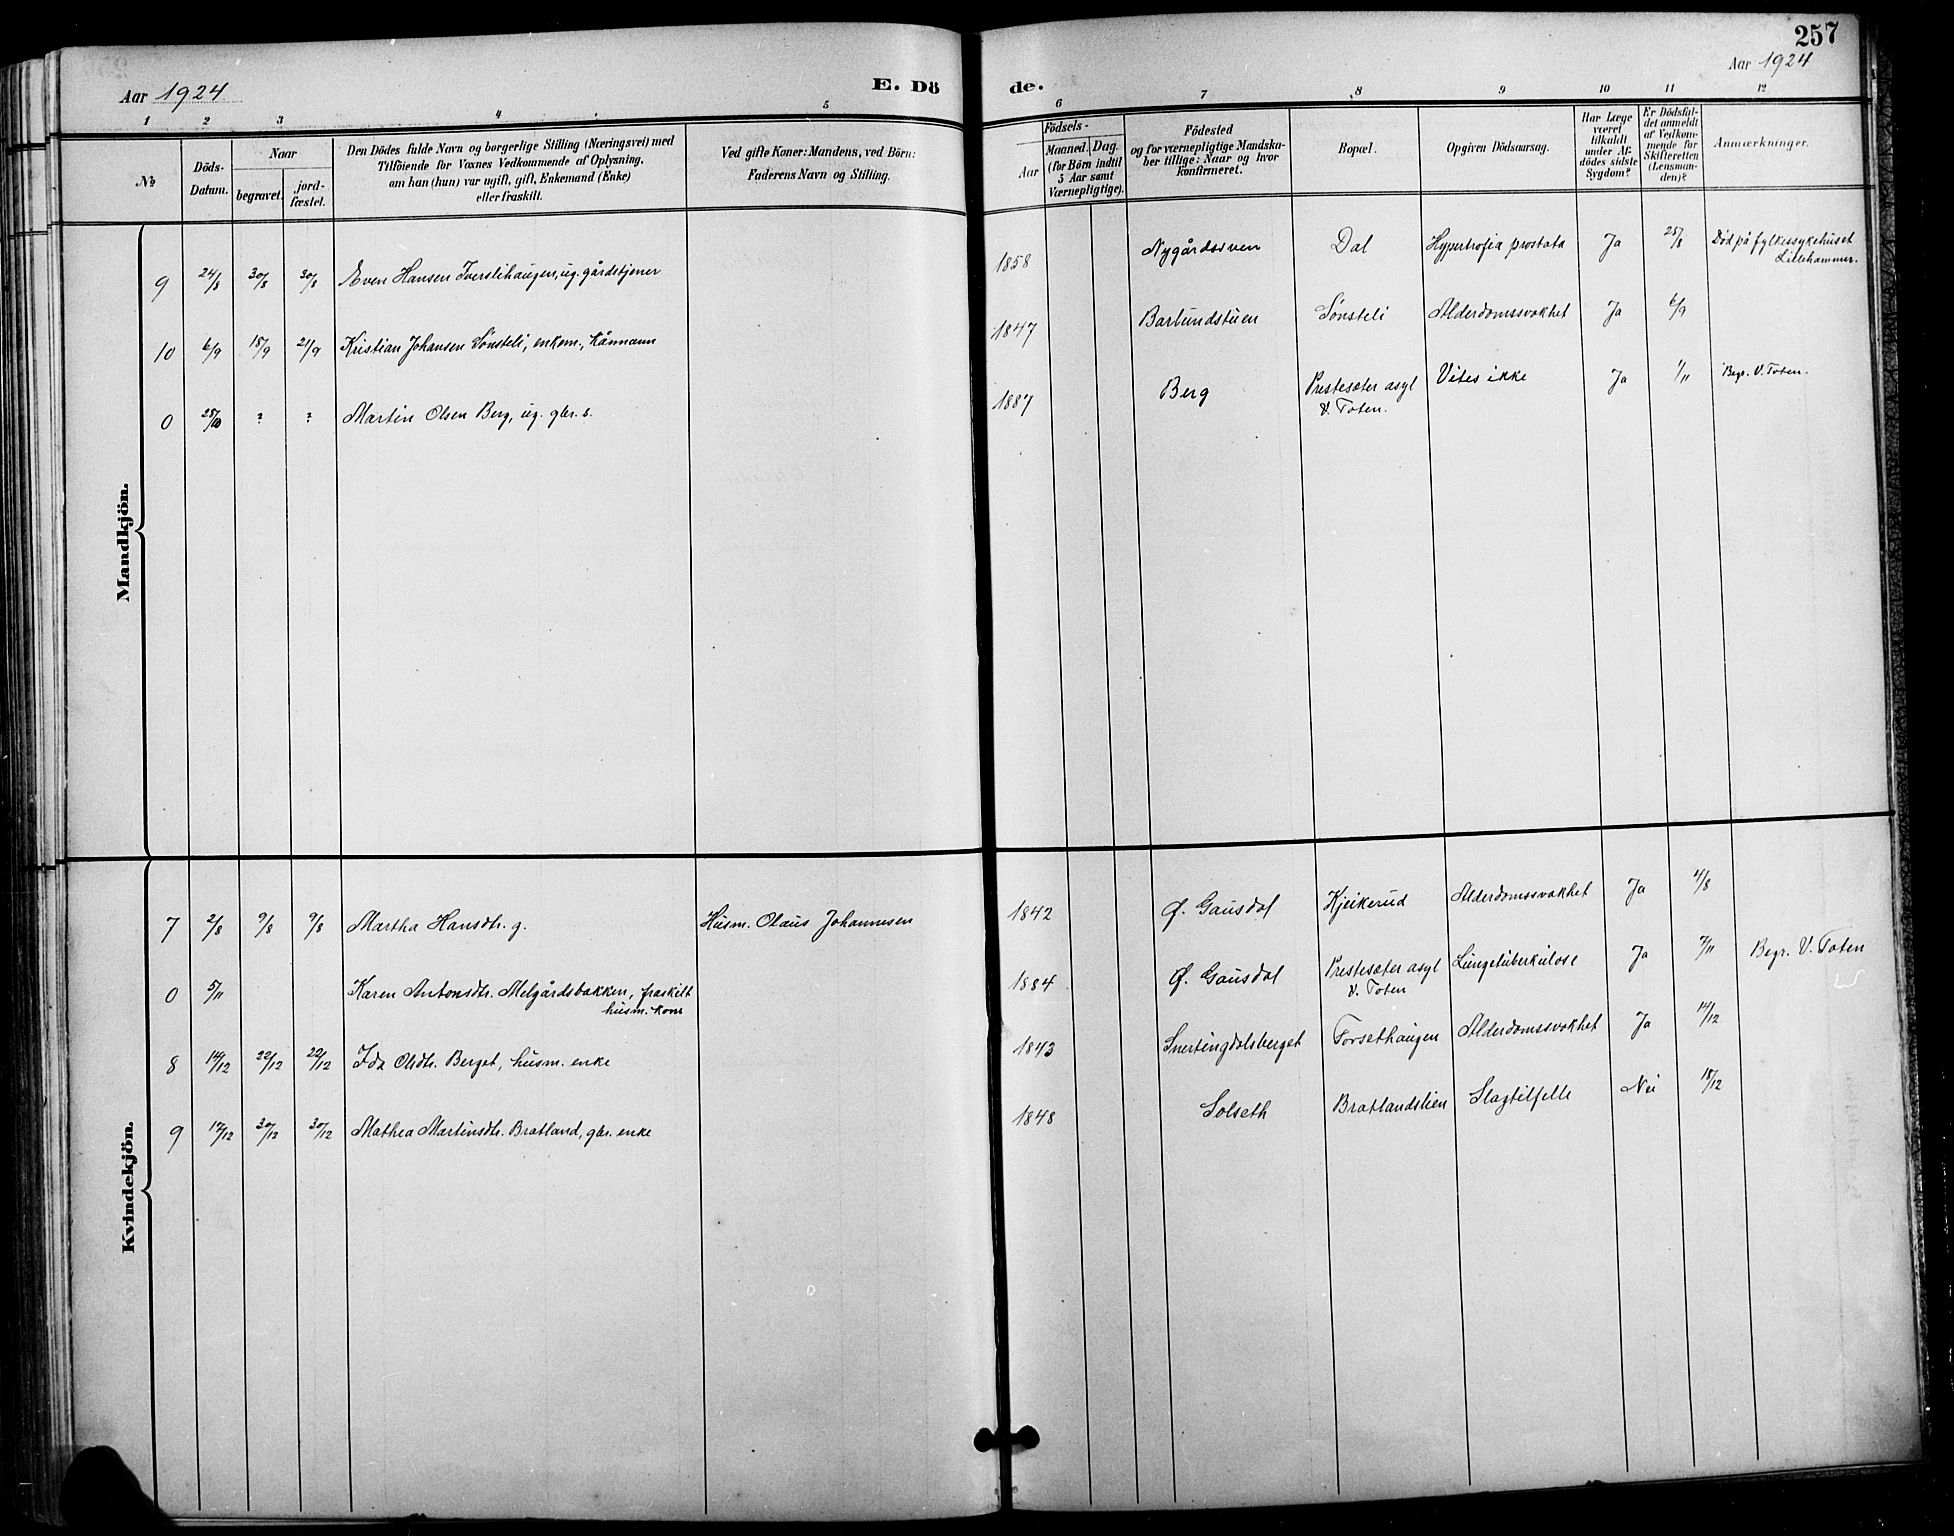 257
Aar 1924
E. Dö
de.
Aar 1924
1 2 3 4 5 6 7 8 9 10 11 12
No
Döds-
Datum.
Naar
begravet.
jord-
fæstet.
Den Dödes fulde Navn og borgerlige Stilling (Næringsvei) med
Tilföiende for Voxnes Vedkommende af Oplysning,
om han (hun) var ugift, gift, Enkemand (Enke)
eller fraskilt.
Ved gifte Koner: Mandens, ved Börn:
Faderens Navn og Stilling.
Födsels-
Aar
Maaned.
Dag.
(for Börn indtil
5 Aar samt
Værnepligtige).
Födested
og for værnepligtige Mandska-
ber tillige: Naar og hvor
konfirmeret.
Bopæl.
Opgiven Dödsaarsag.
Har Læge
været
tilkaldt
under Af-
dödes sidste
Sygdom?
Er Dödsfal-
det anmeldt
af Vedkom-
mende for
Skifteretten
(Lensman-
den)?
Anmærkninger.
Mandkjön.
9 24/8 30/8 30/8 Even Hansen Iverslihaugen, ug. gårdstjener 1858 Nygårdsven Dal Hypertrofia prostata Ja 25/8 Död på fylkessykehuset
Lillehammer.
10 6/9 18/9 21/9 Kristian Johansen Sönsteli, enkem., kårmann 1847 Barlundstuen Sönsteli Alderdomssvakhet Ja 6/9
0 25/10 ? ? Martin Olsen Berg, ug. gbr. s. 1887 Berg Prestesæter asyl
V. Toten. Vites ikke Ja 1/11 Begr. V. Toten.
Kvindekjön.
7 2/8 9/8 9/8 Martha Hansdtr. g. Husm. Olaus Johannesen 1842 Ø. Gausdal Kjeikerud Alderdomssvakhet Ja 4/8
0 5/11 Karen Antonsdtr. Melgårdsbakken, fraskilt
husm. kone 1884 Ø. Gausdal Prestesæter asyl
V. Toten Lungetuberkulose Ja 7/11 Begr. V. Toten
8 14/12 22/12 22/12 Ida Olsdtr. Berget, husm. enke 1843 Snertingdalsberget Forsethaugen Alderdomssvakhet Ja 14/12
9 17/12 30/12 30/12 Mathea Martinsdtr. Bratland, gbr. enke 1848 Solseth Bratlandslien Slagtilfelle Nei 18/12